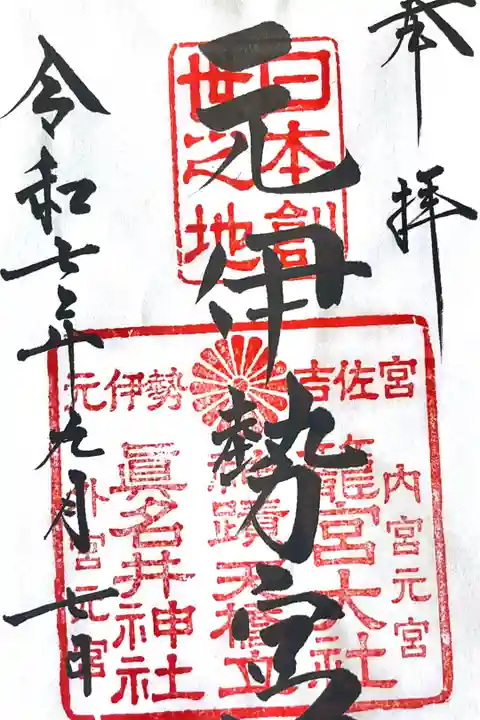 奉拝
元伊勢宮
令和七年九月七日
日本創
世之地
元伊勢
吉佐宮
内宮元宮
籠宮大社
天橋立
眞名井神社
外宮元宮